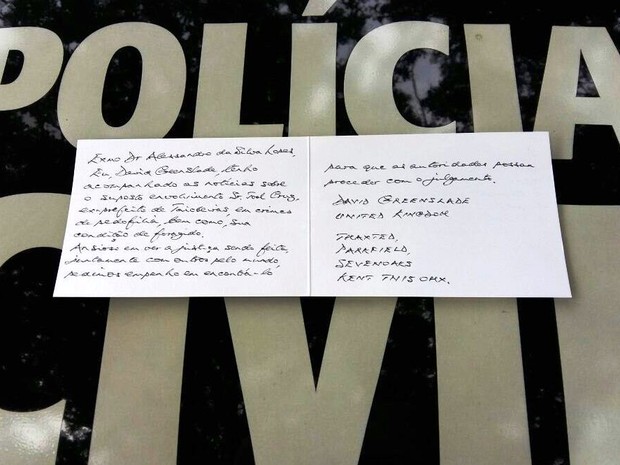 POLÍCIA
CIVI
Exmo Dr Alessandro da Silva Lopes,
Eu, David Greenslade, tenho
acompanhado as notícias sobre
o suposto envolvimento Sr. Joel Cruz,
ex-prefeito de Taiobeiras, em crimes
de pedofilia, bem como, sua
condição de foragido.
Ansioso em ver a justiça sendo feita,
juntamente com outros pelo mundo,
pedimos empenho em encontrá-ló
para que as autoridades possam
proceder com o julgamento.
DAVID GREENSLADE
UNITED KINGDOM
THAXTED,
PARKFIELD,
SEVENOAKS
KENT TN15 0HX.